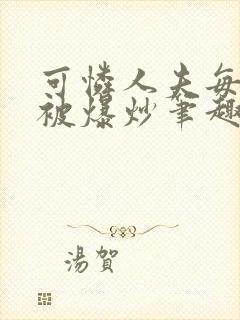 可憐人夫每
被爆炒筆趣
湯賀